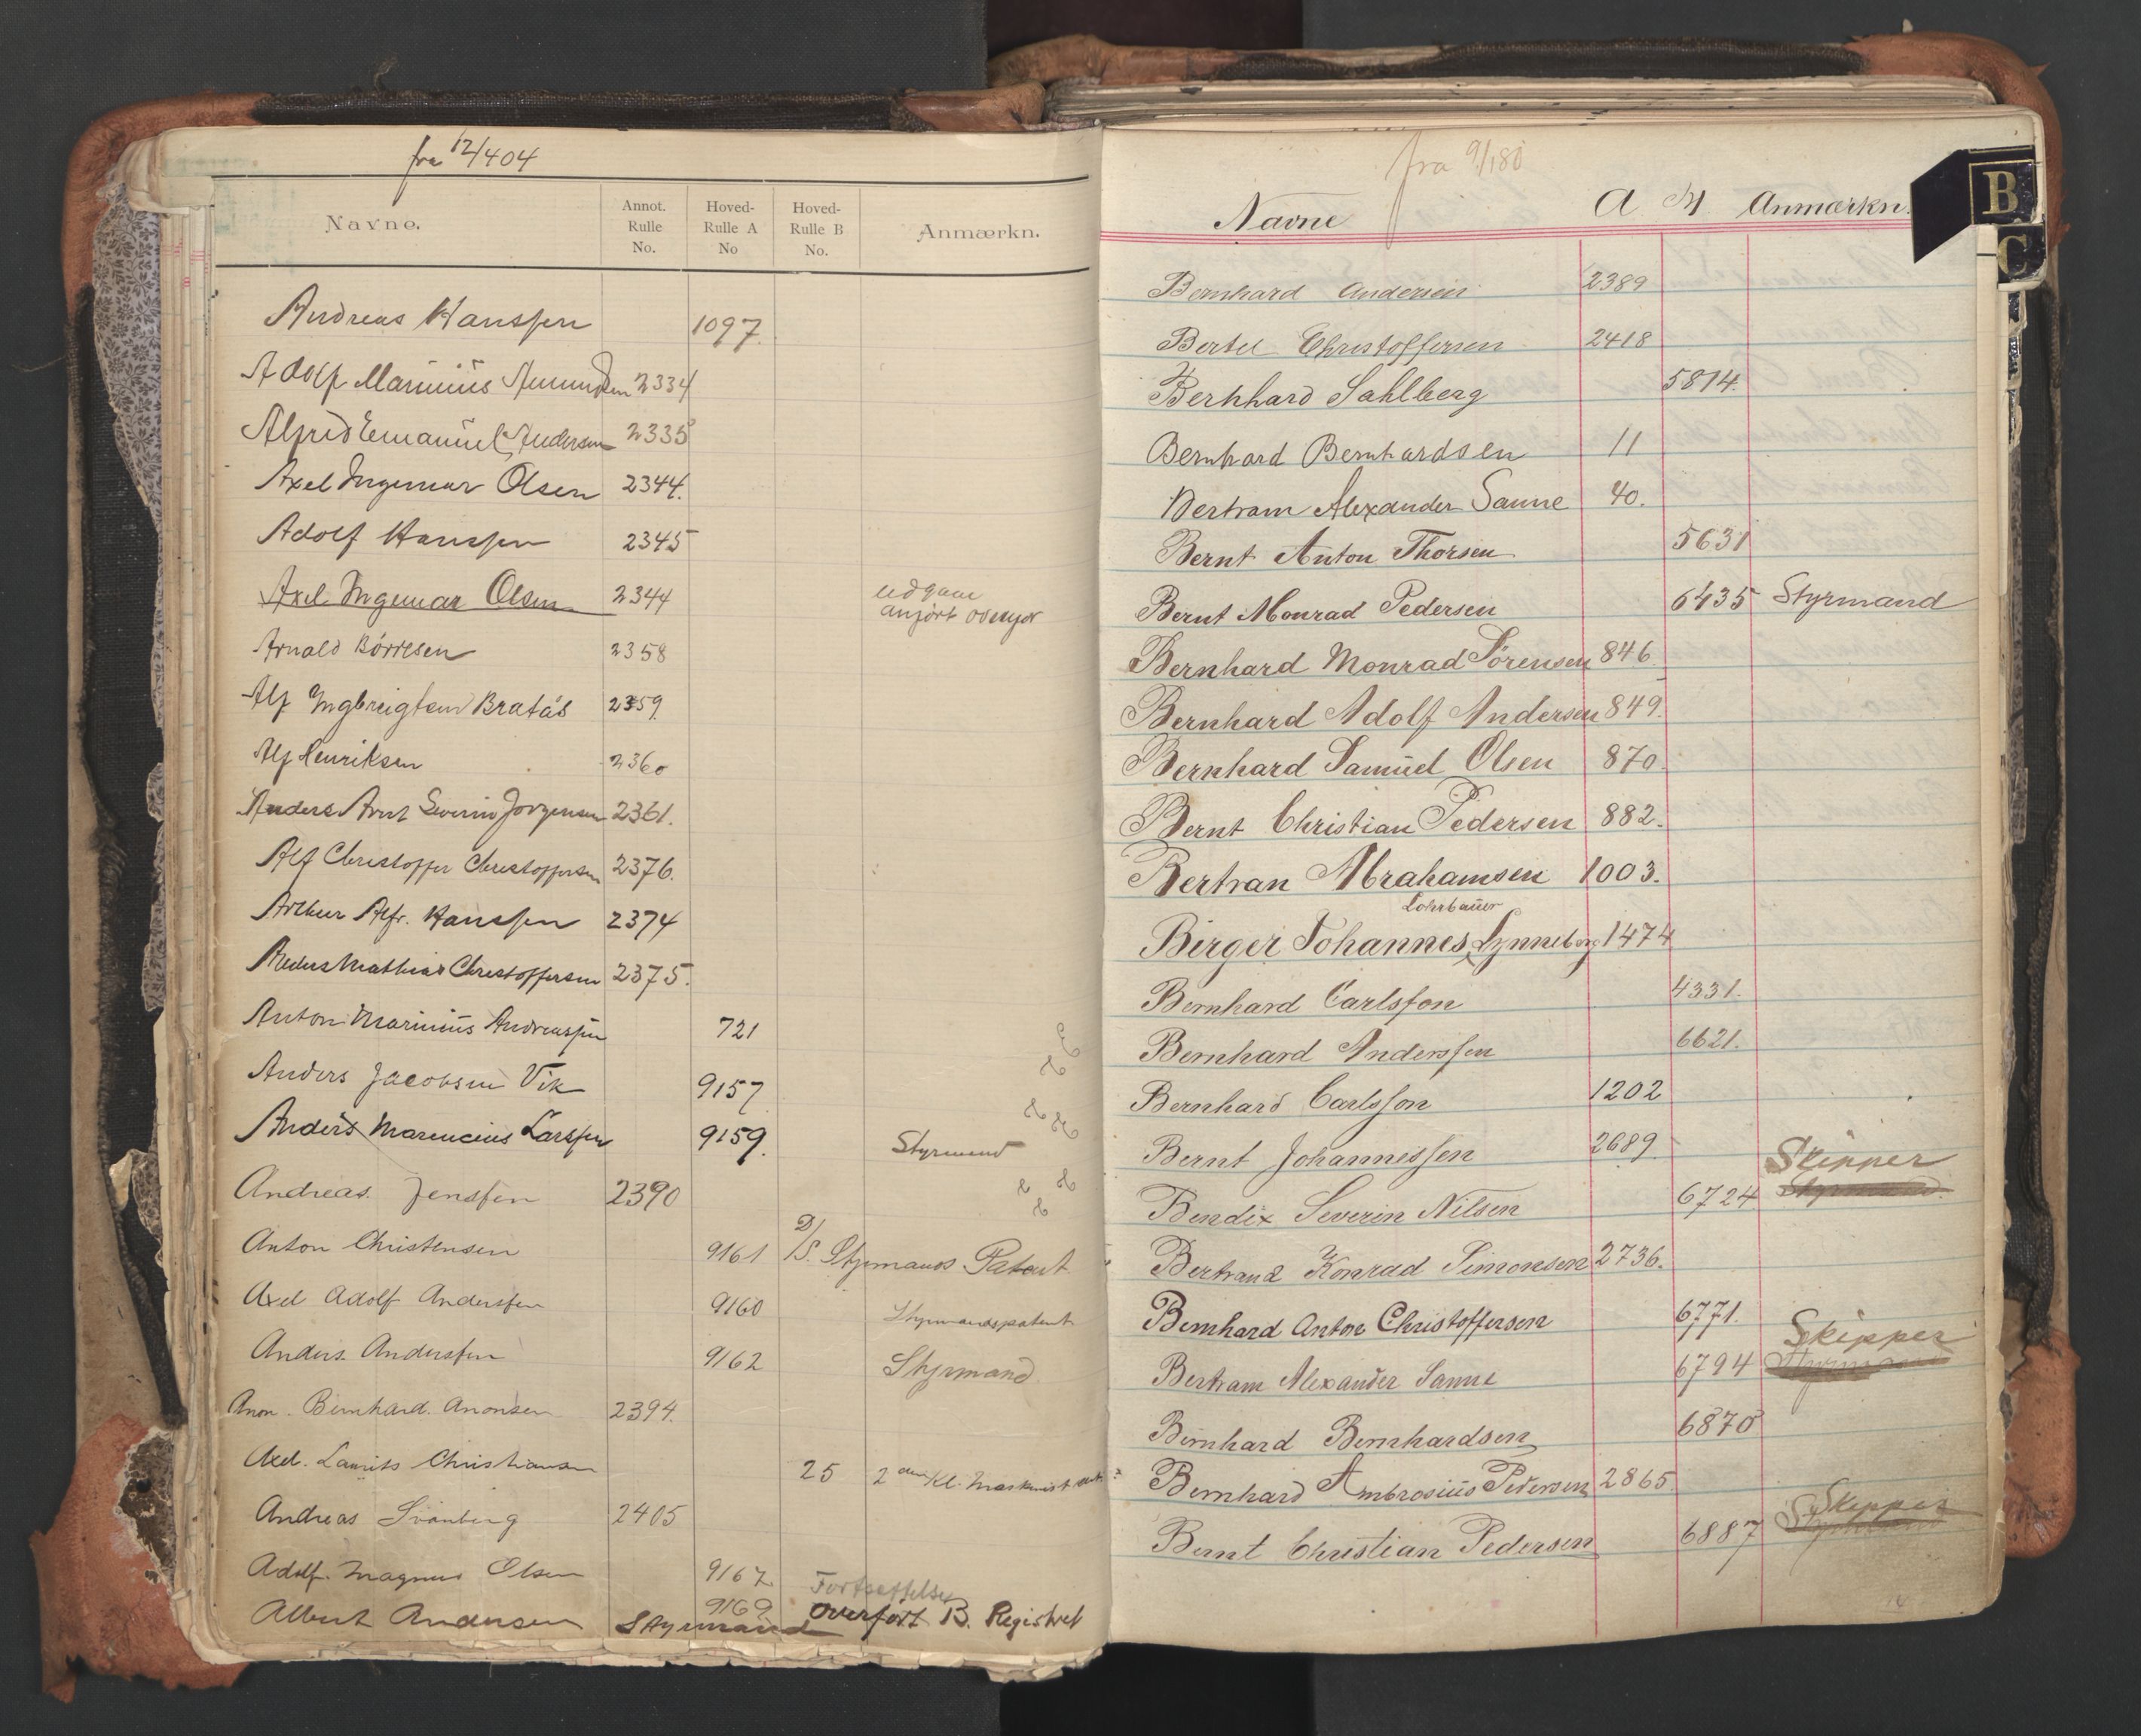 fra 12/404
Navne. Annot. Rulle No. Hoved-Rulle A No Hoved-Rulle B No. Anmærkn.
Andreas Hanssen 1097.
Adolf Marinius Amundsen 2334
Alfred Emanuel Andersen 2335
Axel Ingemar Olsen 2344.
Adolf Hanssen 2345
Axel Ingemar Olsen 2344 udgaar anført ovenfor
Arnald Børresen 2358
Alf Ingbreigtsen Bratås 2359.
Alf Henriksen 2360
Anders Arnt Severin Jørgensen 2361.
Alf Christoffer Christoffersen 2376.
Arthur Alfr. Hanssen 2374
Mathias Christoffersen 2375.
Anton Marinius Andreassen 721
Anders Jacobsen Vik 9157
Anders Marencius Larssen 9159. Styrmand
Andreas Jenssen 2390
Anton Christensen 9161 D/S. Styrmands Patent
Axel Adolf Anderssen 9160 Styrmandspatent
Anders Anderssen 9162 Styrmand
Anon. Bernhard. Anonsen 2394.
Axel. Laurits Christiansen 25 2den Kl. Maskinist
Andreas Svanberg 2405
Adolf. Magnus Olsen 9167
Albert Andersen 9169 Styrmand
Fortsættelse
overført B. Registret
fra 9/180
B
C
Navne A H Anmærkn.
Bernhard Andersen 2389
Bertel Christoffersen 2418
Bernhard Sahlberg 5814.
Bernhard Bernhardsen 11
Bertram Alexander Sanne 40.
Bernt Anton Thorsen 5631
Bernt Monrad Pedersen 6435 Styrmand
Bernhard Monrad Sörensen 846.
Bernhard Adolf Andersen 849.
Bernhard Samuel Olsen 870.
Bernt Christian Pedersen 882.
Bertran Abrahamsen 1003.
Lohrbauer
Birger Johannes Lynneborg 1474
Bernhard Carlsson 4331.
Bernhard Anderssen 6621.
Bernhard Carlsson 1202
Bernt Johannessen 2689.
Skipper
Bendix Severin Nilsen 6724 Styrmand.
Bertrand Konrad Simonsen 2736.
Bernhard Anton Christoffersen 6771.
Skipper
Bertram Alexander Sanne 6794 Styrmand
Bernhard Bernhardsen 6870
Bernhard Ambrosius Pedersen 2865
Skipper
Bernt Christian Pedersen 6887 Styrmand